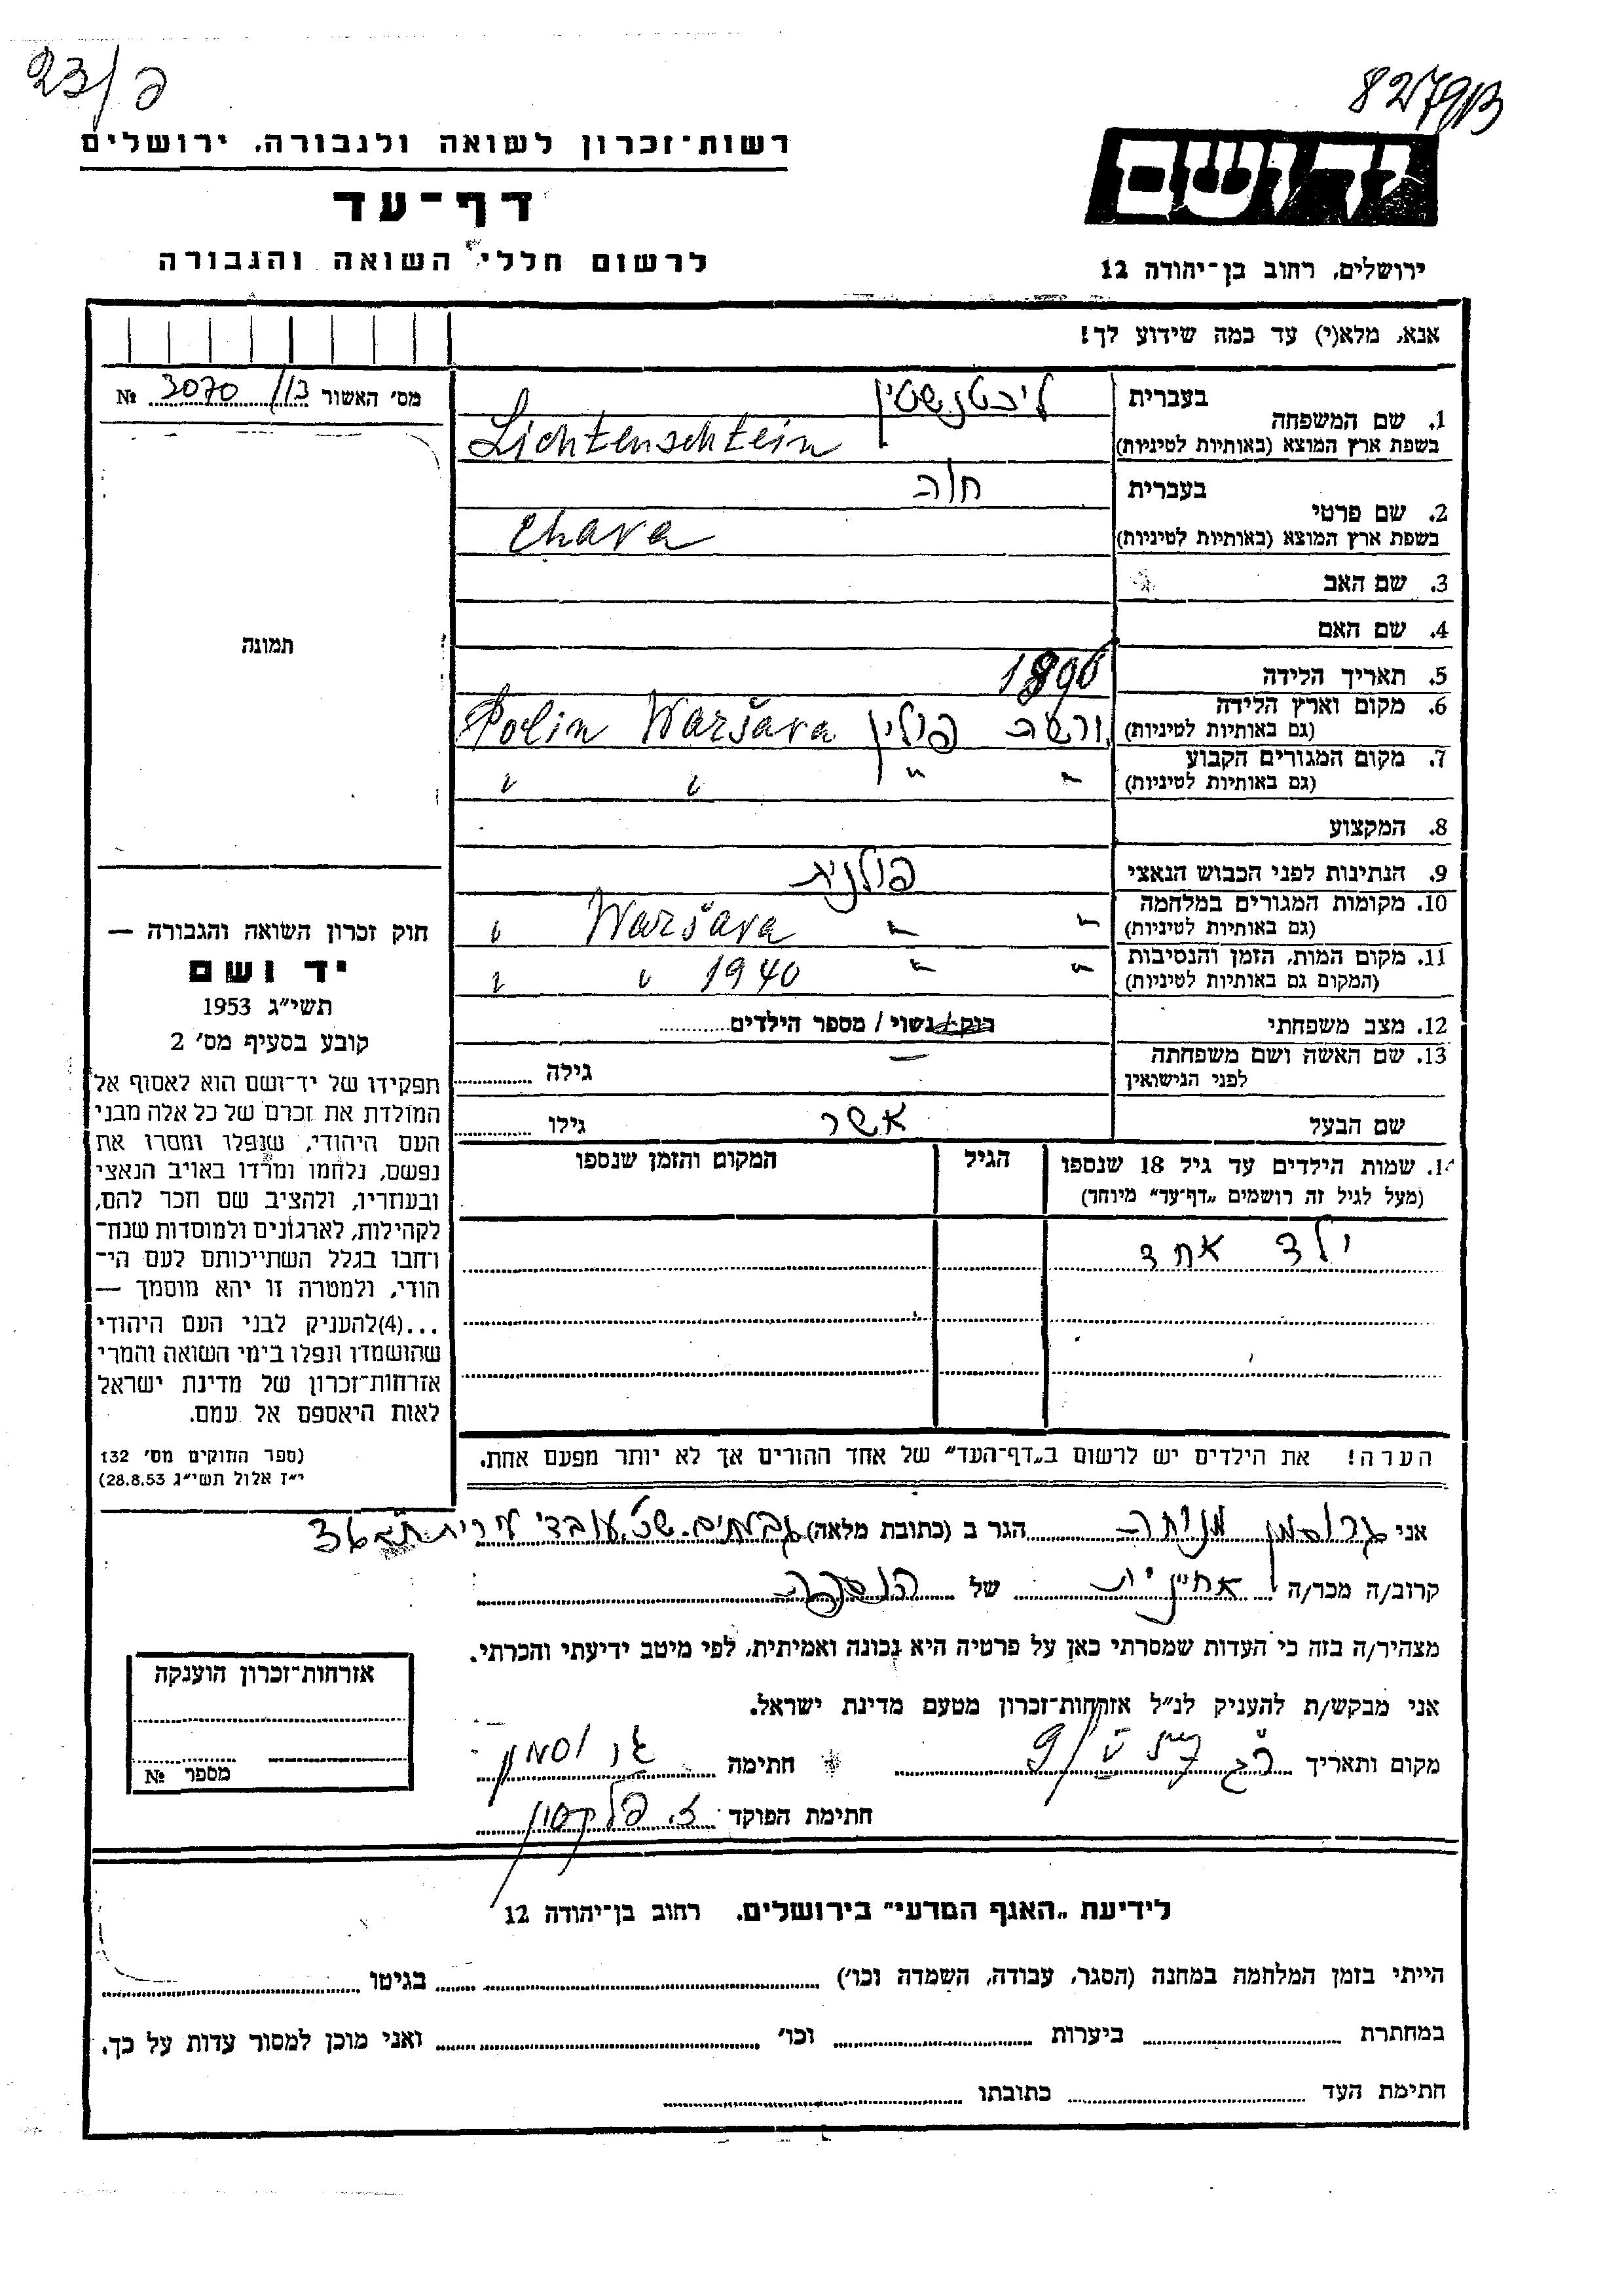 23/פ
8279/13
רשות־זכרון לשואה ולגבורה, ירושלים
יד ושם
דף־עד
לרשום חללי השואה והגבורה
ירושלים, רחוב בן־יהודה 12
אנא, מלא(י) עד כמה שידוע לך!
מס׳ האשור 3070/13 №
1. שם המשפחה
בעברית
ליכטנשטין
בשפת ארץ המוצא (באותיות לטיניות)
Lichtenschtein
2. שם פרטי
בעברית
חוה
בשפת ארץ המוצא (באותיות לטיניות)
Chava
3. שם האב
4. שם האם
תמונה
5. תאריך הלידה
1896
6. מקום וארץ הלידה
(גם באותיות לטיניות)
ורשה פולין Waršava Polin
7. מקום המגורים הקבוע
(גם באותיות לטיניות)
" " " "
8. המקצוע
9. הנתינות לפני הכבוש הנאצי
פולנית
10. מקומות המגורים במלחמה
(גם באותיות לטיניות)
" " Waršava "
11. מקום המות, הזמן והנסיבות
(המקום גם באותיות לטיניות)
" " 1940 " "
12. מצב משפחתי
רוק/נשוי / מספר הילדים
13. שם האשה ושם משפחתה
לפני הנישואין
— גילה
שם הבעל
אשר גילו
14. שמות הילדים עד גיל 18 שנספו
(מעל לגיל זה רושמים „דף־עד״ מיוחד)
הגיל
המקום והזמן שנספו
ילד אחד
הערה! את הילדים יש לרשום ב„דף־העד״ של אחד ההורים אך לא יותר מפעם אחת.
חוק זכרון השואה והגבורה —
יד ושם
תשי״ג 1953
קובע בסעיף מס׳ 2
תפקידו של יד־ושם הוא לאסוף אל
המולדת את זכרם של כל אלה מבני
העם היהודי, שנפלו ומסרו את
נפשם, נלחמו ומרדו באויב הנאצי
ובעוזריו, ולהציב שם וזכר להם,
לקהילות, לארגונים ולמוסדות שנח־
רחבו בגלל השתייכותם לעם הי־
הודי, ולמטרה זו יהא מוסמך —
...(4)להעניק לבני העם היהודי
שהושמדו ונפלו בימי השואה והמרי
אזרחות־זכרון של מדינת ישראל
לאות היאספם אל עמם.
(ספר החוקים מס׳ 132
י״ז אלול תשי״ג 28.8.53)
אני גרוסמן מניחה הגר ב (כתובת מלאה) גבעתיים. שכ׳ עובדי עירית ת״א 36
קרוב/ה מכר/ה אחינית של הנספה
מצהיר/ה בזה כי העדות שמסרתי כאן על פרטיה היא נכונה ואמיתית, לפי מיטב ידיעתי והכרתי.
אני מבקש/ת להעניק לנ״ל אזרחות־זכרון מטעם מדינת ישראל.
מקום ותאריך חתימה גרוסמן
חתימת הפוקד
אזרחות־זכרון הוענקה
מספר №
לידיעת „האגף המדעי״ בירושלים, רחוב בן־יהודה 12
הייתי בזמן המלחמה במחנה (הסגר, עבודה, השמדה וכו׳) בגיטו
במחתרת ביערות וכו׳ ואני מוכן למסור עדות על כך.
חתימת העד כתובתו